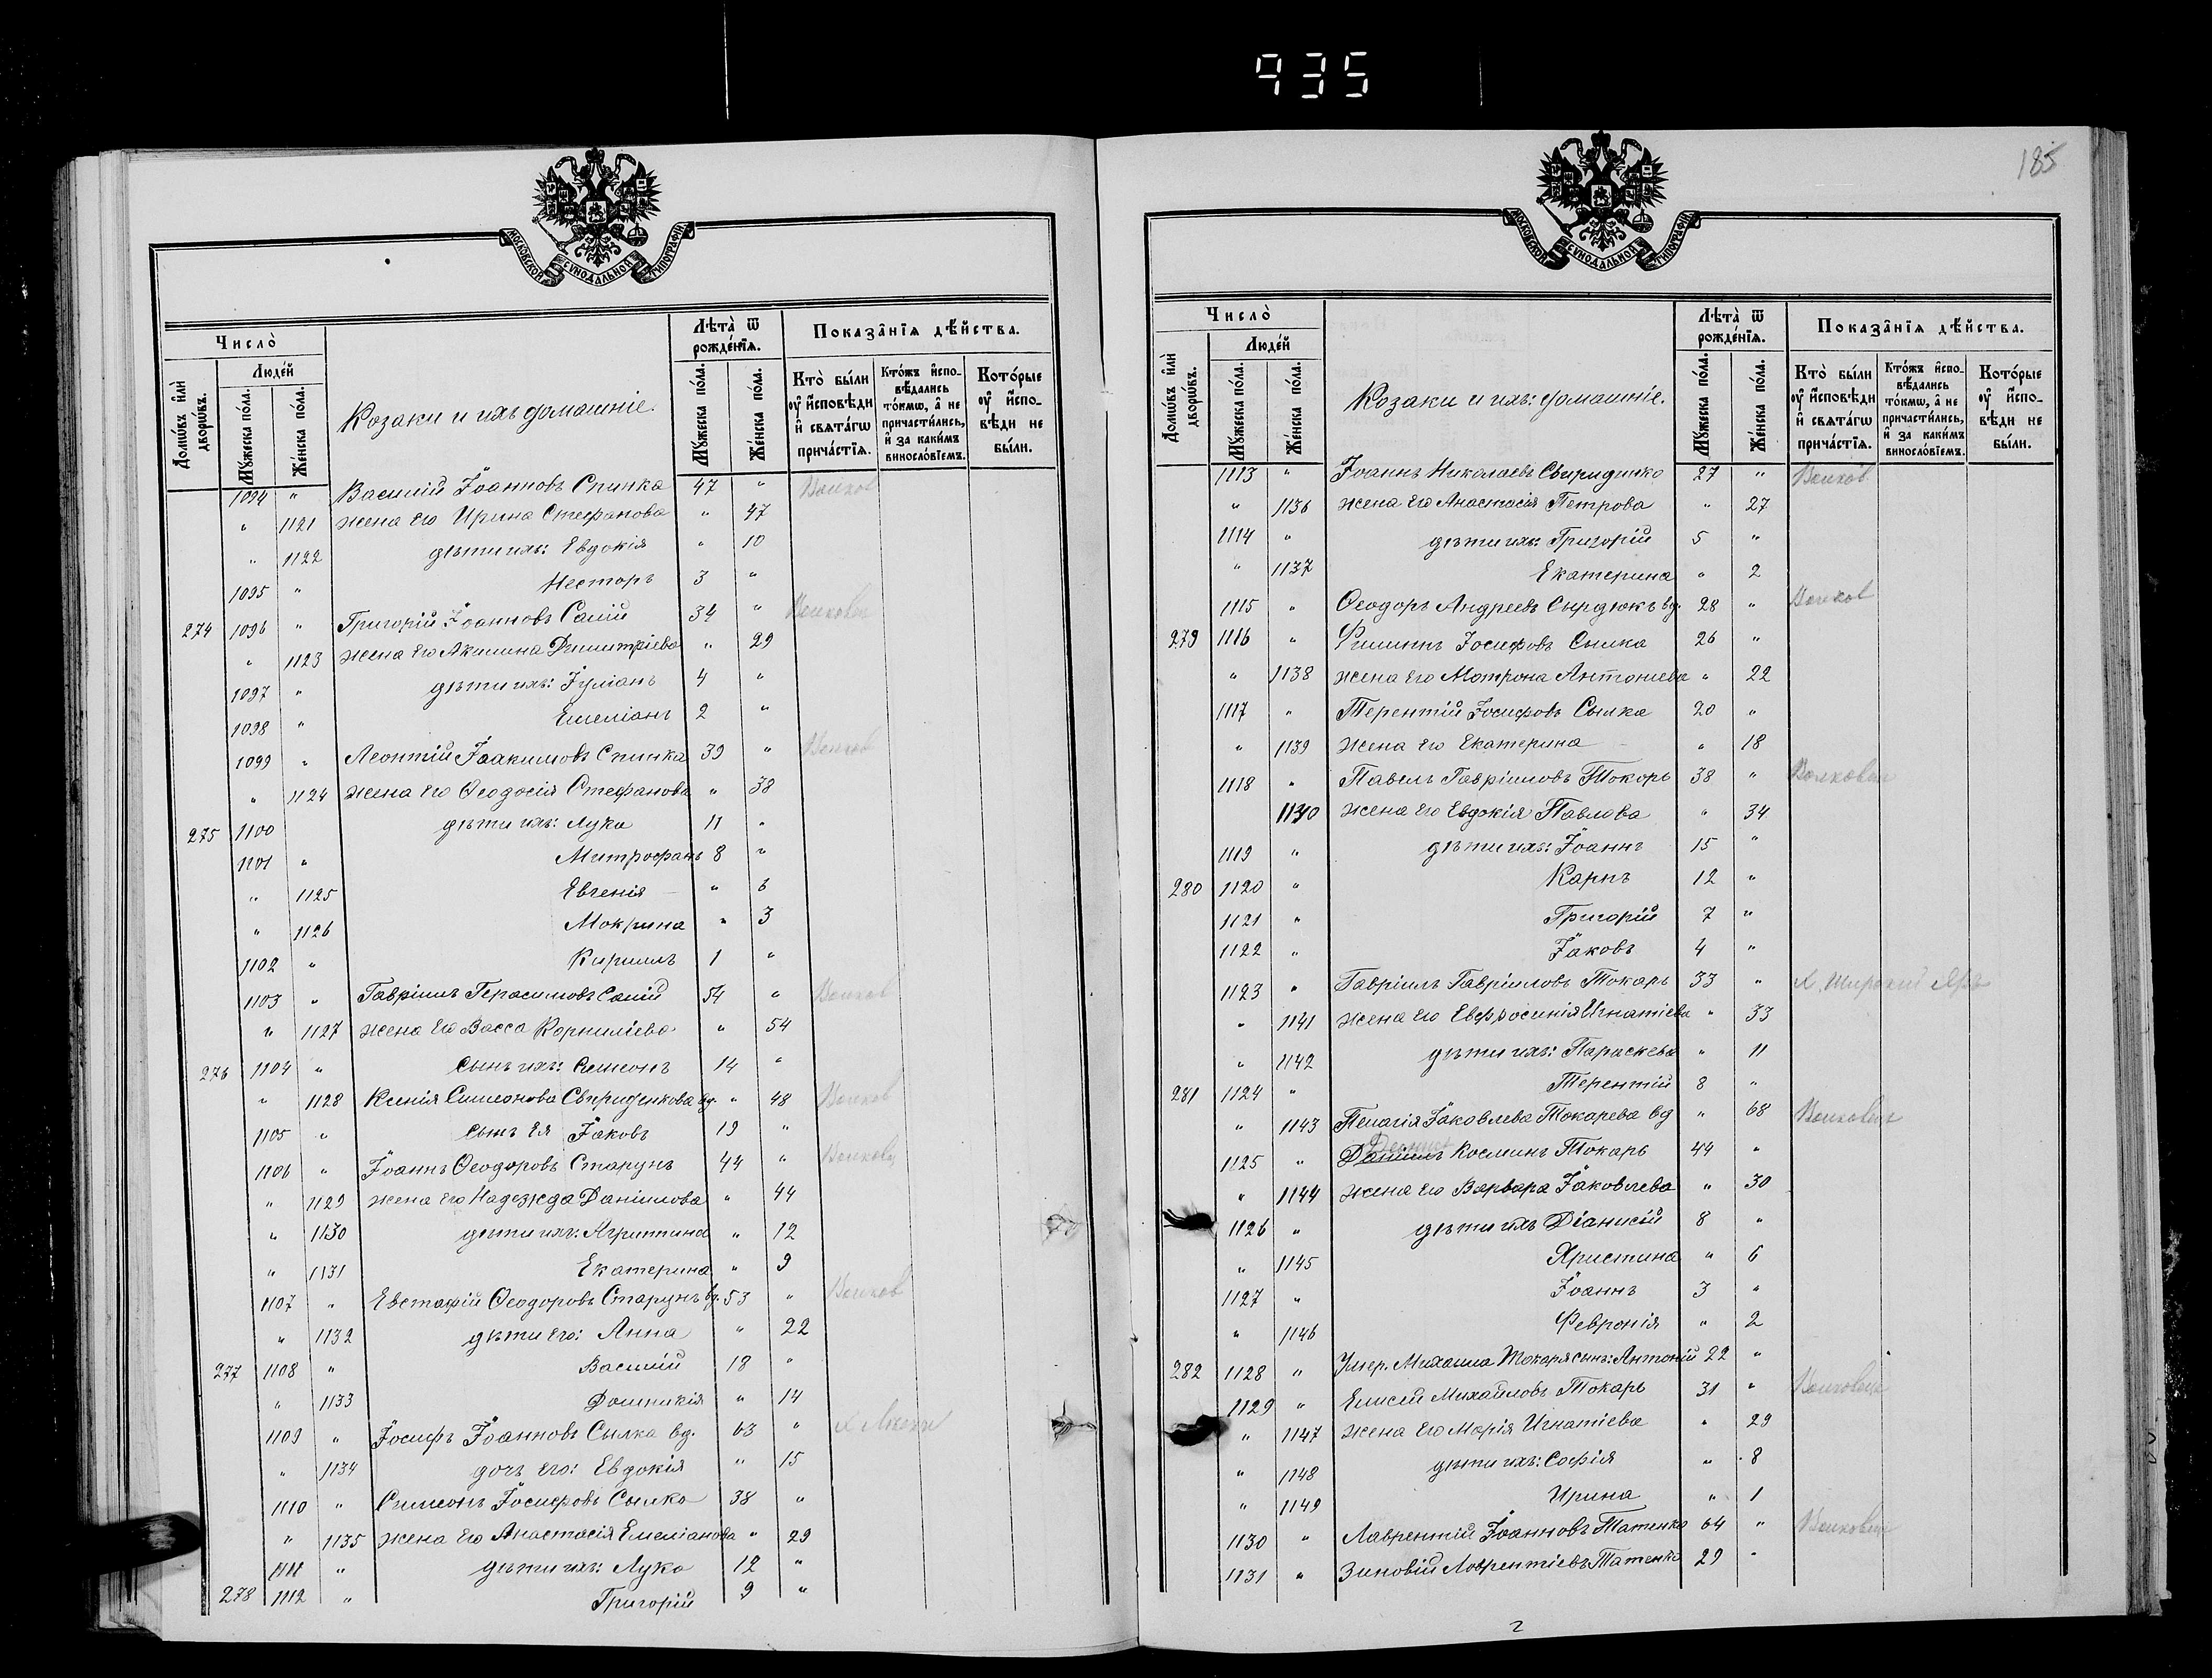 935
МОСКОВСКОЙ СѴНОДАЛЬНОЙ ТИПОГРАФІИ
Число̀
Лѣта̀ ѿ рожде́нїѧ.
Показа̑нїѧ дѣ́йства.
Домѡ́въ и҆лѝ дворѡ́въ.
Люде́й
Мꙋ́жеска по́ла.
Же́нска по́ла.
Козаки и ихъ домашніе.
Мꙋ́жеска по́ла.
Же́нска по́ла.
Кто̀ бы́ли ᲂу҆ и҆сповѣ́ди и҆ свѧта́гѡ прича́стїѧ.
Кто́жъ и҆спо- вѣ́дались то́кмѡ, а҆ не причасти́лись, и҆ за каки́мъ виносло́вїемъ.
Кото́рые ᲂу҆ и҆спо- вѣ́ди не бы́ли.
1094 " Василій Іоанновъ Спинка 47 " Волков
" 1121 жена его Ирина Стефанова " 47
" 1122 дѣти ихъ: Евдокія " 10
1095 " Несторъ 3 "
274 1096 " Григорій Іоанновъ Салій 34 "
" 1123 жена его Акилина Димитріева " 29
1097 " дѣти ихъ: Іуліанъ 4 "
1098 " Емеліанъ 2 "
1099 " Леонтій Іоакимовъ Спинка 39 " Волков
" 1124 жена его Ѳеодосія Стефанова " 38
275 1100 дѣти ихъ: Лука 11 "
1101 " Митрофанъ 8 "
" 1125 Евгенія " 6
" 1126 Мокрина " 3
1102 " Кириллъ 1 "
1103 " Гавріилъ Герасимовъ Салій 54 " Волков
" 1127 жена его Васса Корниліева " 54
276 1104 " сынъ ихъ: Симеонъ 14 "
" 1128 Ксенія Симеонова Свириденкова вд. " 48 Волков
1105 " сынъ ея Іаковъ 19 "
1106 " Іоаннъ Ѳеодоровъ Старунъ 44 "
" 1129 жена его Надежда Даніилова " 44
" 1130 дѣти ихъ: Агриппина " 12
" 1131 Екатерина " 9
1107 " Евстафій Ѳеодоровъ Старунъ вд. 53 " Волков
" 1132 дѣти его: Анна " 22
277 1108 " Василій 18 "
" 1133 Домникія " 14
1109 " Іосифъ Іоанновъ Сылка вд. 63 "
" 1134 дочь его: Евдокія " 15
1110 " Симеонъ Іосифовъ Сылка 38 "
" 1135 жена его Анастасія Емеліанова " 29
1111 " дѣти ихъ: Лука 12 "
278 1112 " Григорій 9 "
185
МОСКОВСКОЙ СѴНОДАЛЬНОЙ ТИПОГРАФІИ
Число̀
Лѣта̀ ѿ рожде́нїѧ.
Показа̑нїѧ дѣ́йства.
Домѡ́въ и҆лѝ дворѡ́въ.
Люде́й
Мꙋ́жеска по́ла.
Же́нска по́ла.
Козаки и ихъ: домашніе.
Мꙋ́жеска по́ла.
Же́нска по́ла.
Кто̀ бы́ли ᲂу҆ и҆сповѣ́ди и҆ свѧта́гѡ прича́стїѧ.
Кто́жъ и҆спо- вѣ́дались то́кмѡ, а҆ не причасти́лись, и҆ за каки́мъ виносло́вїемъ.
Кото́рые ᲂу҆ и҆спо- вѣ́ди не бы́ли.
1113 " Іоаннъ Николаевъ Свириденко 27 " Волков
" 1136 жена его Анастасія Петрова " 27
1114 " дѣти ихъ: Григорій 5 "
" 1137 Екатерина " 2
1115 " Ѳеодоръ Андреевъ Сырдюкъ вд. 28 " Волков
279 1116 " Филиппъ Іосифовъ Сылка 26 "
" 1138 жена его Мотрона Антониева " 22
1117 " Терентій Іосифовъ Сылка 20 "
" 1139 жена его Екатерина " 18
1118 " Павелъ Гавріиловъ Токарь 38 "
1140 жена его Евдокія Павлова " 34
1119 " дѣти ихъ: Іоаннъ 15 "
280 1120 " Карпъ 12 "
1121 " Григорій 7 "
1122 " Іаковъ 4 "
1123 " Гавріилъ Гавріиловъ Токарь 33 " х. Широкий Яръ
" 1141 жена его Евфросинія Игнатіева " 33
" 1142 дѣти ихъ: Параскева " 11
281 1124 " Терентій 8 "
" 1143 Пелагія Іаковлева Токарева вд " 68
1125 " Даніилъ Космин​ъ Токарь 44 "
" 1144 жена его Варвара Іаковлева " 30
1126 " дѣти ихъ Діанисій 8 "
" 1145 Христина " 6
1127 " Іоаннъ 3 "
" 1146 Февронія " 2
282 1128 " Умер. Михаила Токаря сынъ: Антоній 22 "
1129 " Елисей Михайловъ Токарь 31 "
" 1147 жена его Марія Игнатіева " 29
" 1148 дѣти ихъ: Софія " 8
" 1149 Ирина " 1
1130 " Лаврентій Іоанновъ Татенко 64 "
1131 " Зиновій Лаврентіевъ Татенко 29 "
2